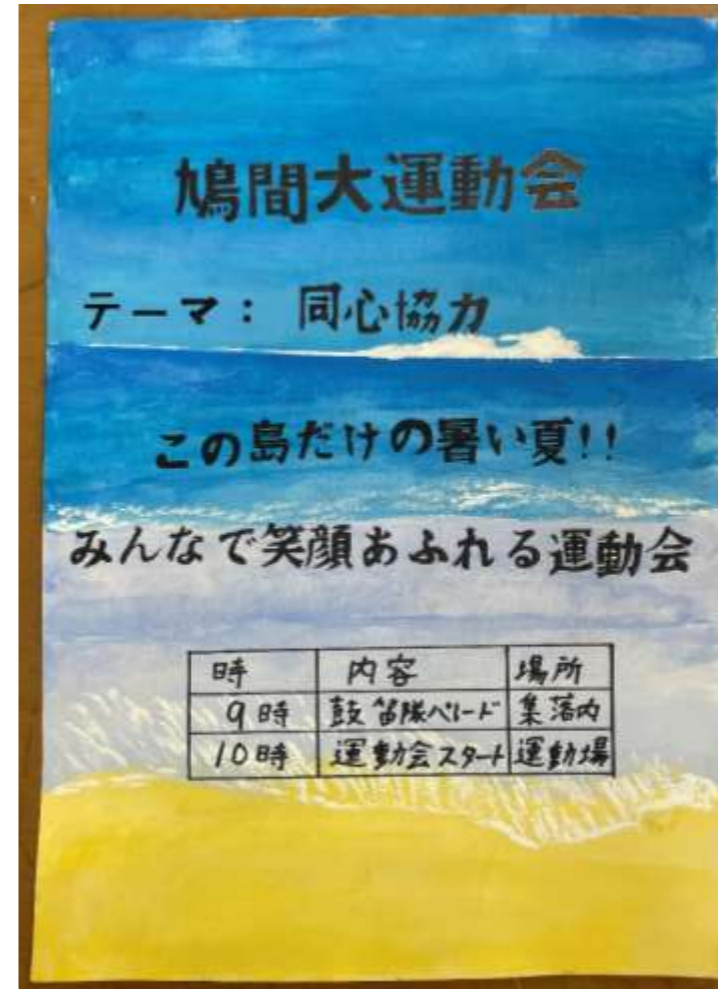 鳩間大運動会
テーマ： 同心協力
この島だけの暑い夏!!
みんなで笑顔あふれる運動会
時 内容 場所
9時 鼓笛隊パレード 集落内
10時 運動会スタート 運動場